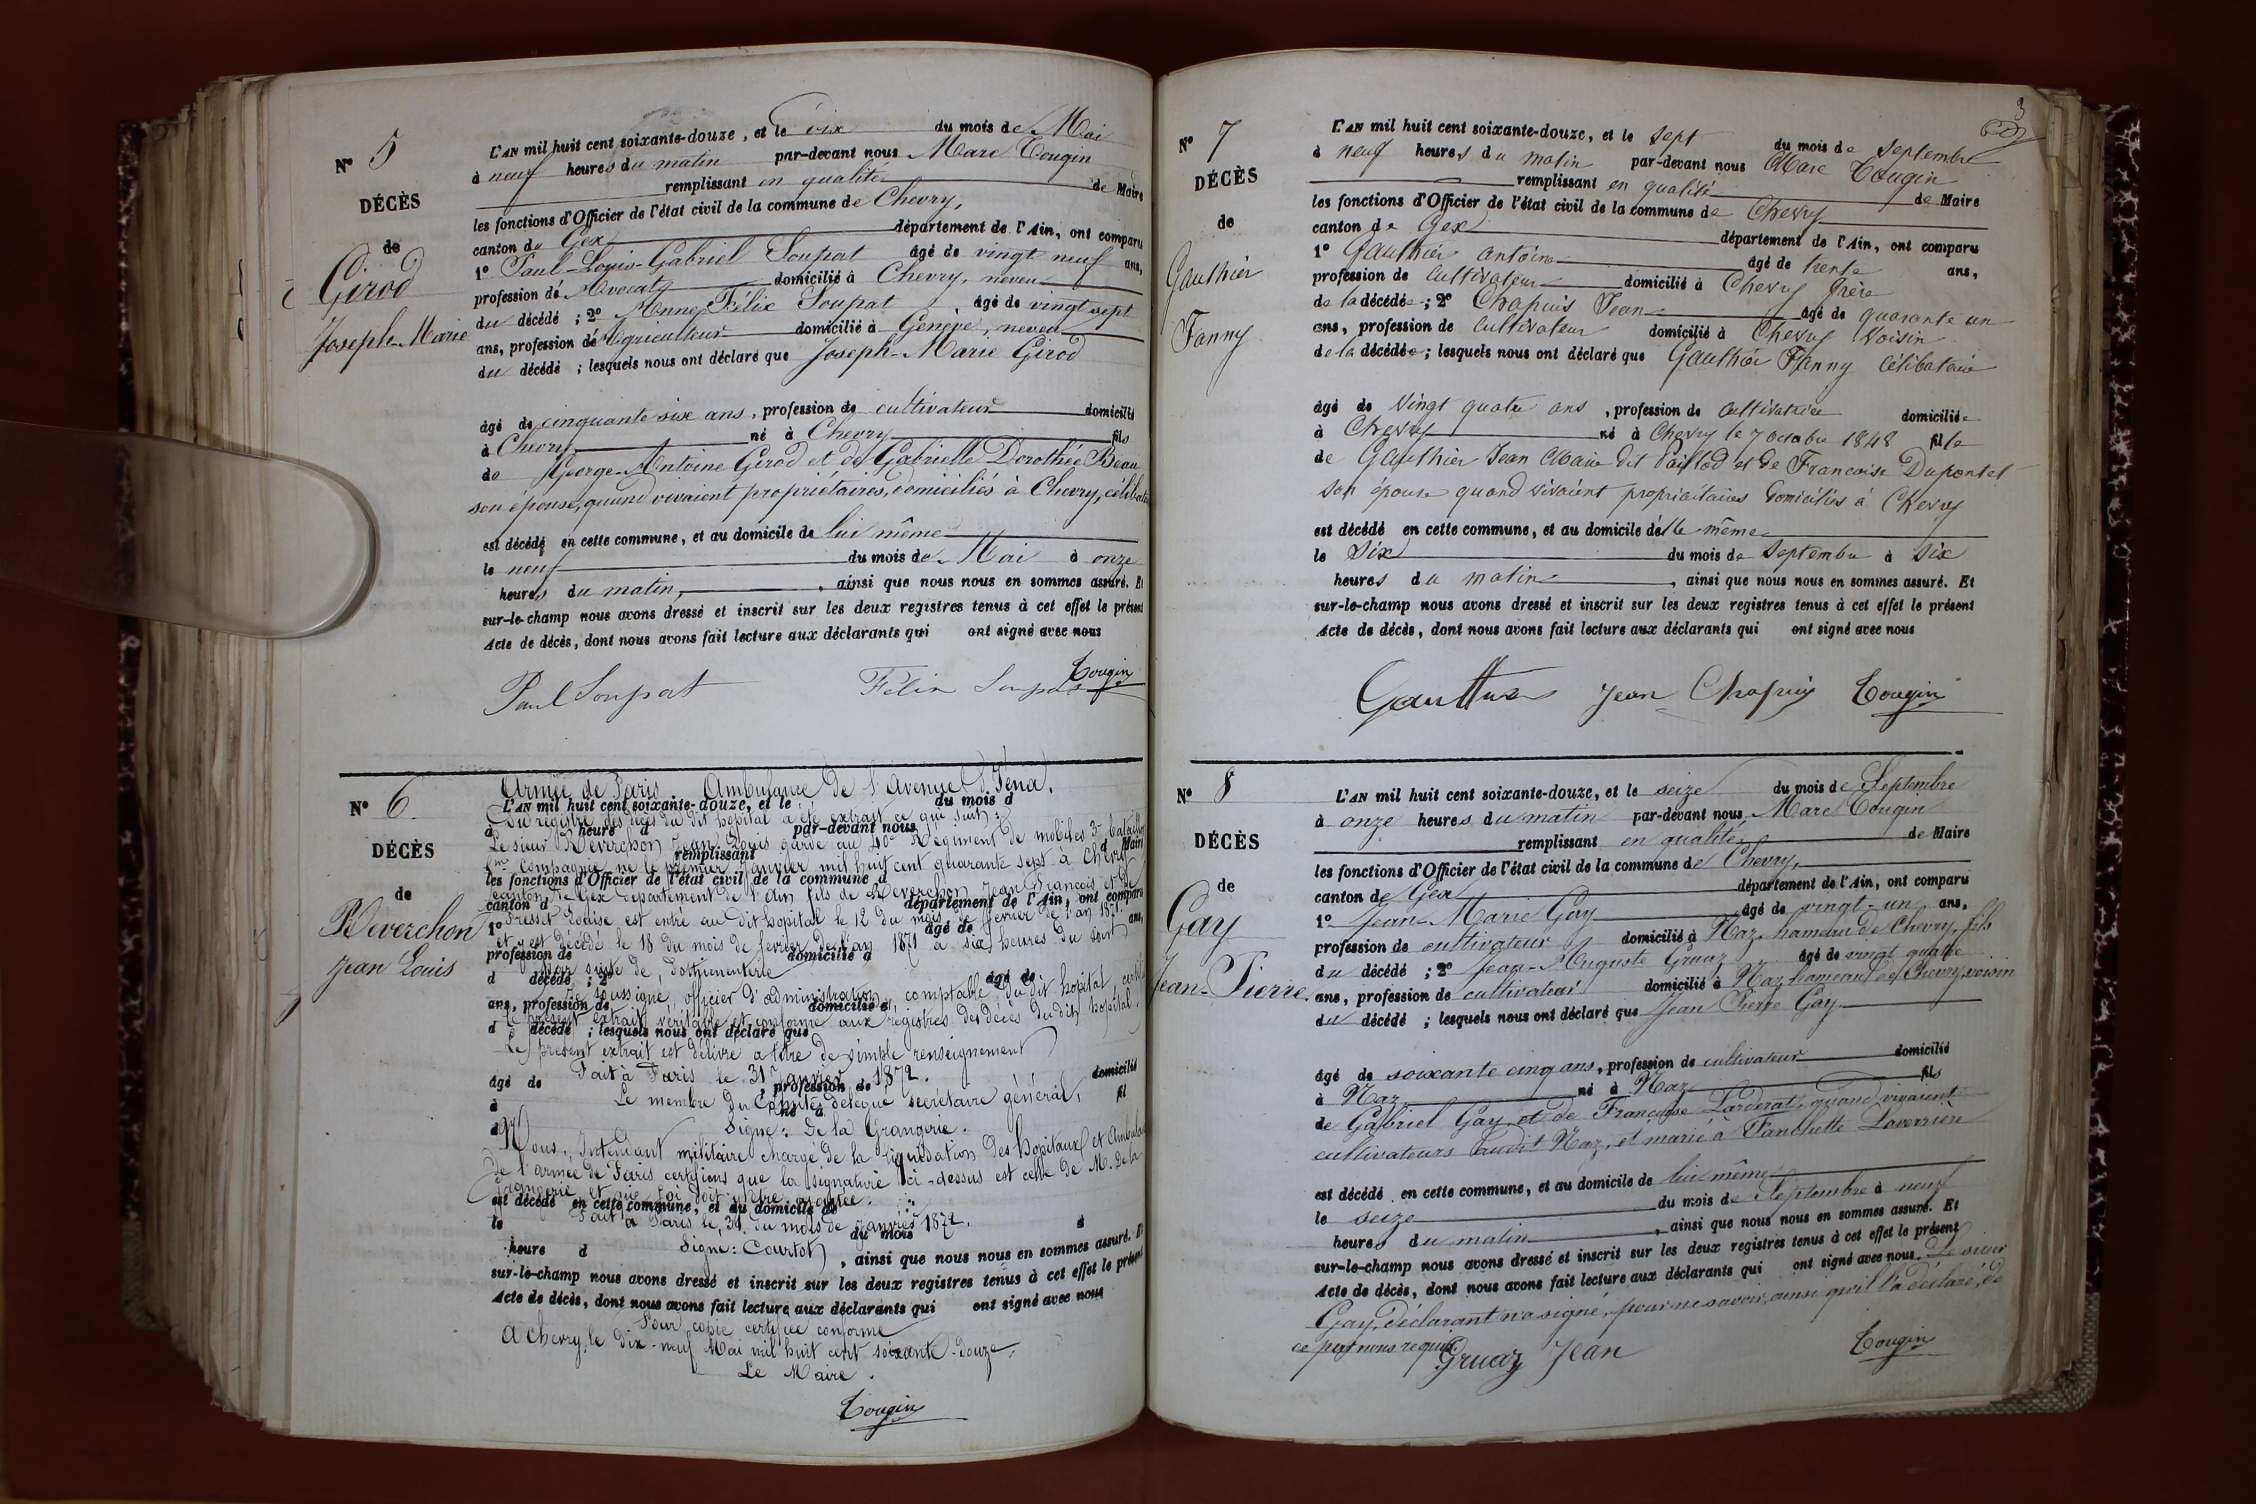 N° 5
DÉCÈS
de
Girod
Joseph-Marie
L'AN mil huit cent soixante-douze, et le dix du mois de Mai
à neuf heures du matin par-devant nous Marc Tougin
remplissant en qualité de Maire
les fonctions d'Officier de l'état civil de la commune de Chevry,
canton de Gex département de l'Ain, ont comparu
1° Paul-Louis-Gabriel Soupat âgé de vingt neuf ans,
profession de Avocat domicilié à Chevry, neveu
du décédé ; 2° Anne Félix Soupat âgé de vingt sept
ans, profession de Agriculteur domicilié à Genève, neveu
du décédé ; lesquels nous ont déclaré que Joseph-Marie Girod
âgé de cinquante six ans, profession de cultivateur domicilié
à Chevry né à Chevry fils
de George-Antoine Girod et de Gabrielle Dorothée Beau
son épouse, quand vivaient propriétaires, domiciliés à Chevry,
est décédé en cette commune, et au domicile de lui même
le neuf du mois de Mai à onze
heures du matin, ainsi que nous nous en sommes assuré. Et
sur-le-champ nous avons dressé et inscrit sur les deux registres tenus à cet effet le présent
Acte de décès, dont nous avons fait lecture aux déclarants qui ont signé avec nous
Tougin
Paul Soupat Félix Soupat
N° 6.
DÉCÈS
de
Reverchon
Jean Louis
Armée de Paris Ambulance de l'Avenue d'Iéna.
L'AN mil huit cent soixante-douze, et le du mois d
Du registre des décès du dit hôpital a été extrait ce qui suit :
à heure d par-devant nous
Le sieur Reverchon Jean Louis garde au 40me Régiment de mobiles 3e bataillon
remplissant d Maire
Compagnie né le premier janvier mil huit cent quarante sept à Chevry
les fonctions d'Officier de l'état civil de la commune d
canton de Gex département de l'Ain fils de Reverchon Jean François et de
canton d département de l'Ain, ont comparu
Louise est entré au dit hopital le 12 du mois de février de l'an 1871
1° âgé de ans,
et y est décédé le 18 du mois de février de l'an 1871 à six heures du
profession de domicilié à
par suite de,
d décédé ; 2° âgé de
Je soussigné, officier d'administration comptable du dit hopital,
ans, profession de domicilié à
le présent extrait véritable et conforme aux registres des décès du dit hopital.
d décédé ; lesquels nous ont déclaré que
Le présent extrait est délivré à titre de simple renseignement
Fait à Paris le 31 Janvier 1872.
âgé de profession de domicilié
Le membre du Comité délégué secrétaire général,
à né à fil
Signé : De la Grangerie.
Nous, Intendant militaire chargé de la liquidation des hopitaux et Ambulances
de l'armée de Paris certifions que la signature ci-dessus est celle de M. De la
Grangerie et que foi doit y être ajoutée.
est décédé en cette commune, et au domicile de
Fait à Paris le, 31. du mois de Janvier 1872.
le du mois à
Signé : Courtot
heure d , ainsi que nous nous en sommes assuré. Et
sur-le-champ nous avons dressé et inscrit sur les deux registres tenus à cet effet le présent
Acte de décès, dont nous avons fait lecture aux déclarants qui ont signé avec nous
Pour copie certifiée conforme
A Chevry, le dix-neuf Mai mil huit cent soixante-douze.
Le Maire.
Tougin
3
N° 7
DÉCÈS
de
Gauthier
Fanny
L'AN mil huit cent soixante-douze, et le sept du mois de septembre
à neuf heures du matin par-devant nous Marc Tougin
remplissant en qualité de Maire
les fonctions d'Officier de l'état civil de la commune de Chevry
canton de Gex département de l'Ain, ont comparu
1° Gauthier antoine âgé de trente ans,
profession de cultivateur domicilié à Chevry frère
de la décédée ; 2° Chapuis Jean âgé de quarante un
ans, profession de cultivateur domicilié à Chevry Voisin
de la décédée ; lesquels nous ont déclaré que Gauthier Fanny Célibataire
âgé de vingt quatre ans, profession de cultivatrice domiciliée
à Chevry né à Chevry le 7 octobre 1848 fille
de Gauthier Jean Marie dit Paillod et de Francoise Dupontet
son épouse quand vivaient propriétaires domiciliés à Chevry
est décédé en cette commune, et au domicile d'elle-même
le six du mois de septembre à six
heures du matin, ainsi que nous nous en sommes assuré. Et
sur-le-champ nous avons dressé et inscrit sur les deux registres tenus à cet effet le présent
Acte de décès, dont nous avons fait lecture aux déclarants qui ont signé avec nous
Gauthier Jean Chapuis Tougin
N° 8
DÉCÈS
de
Gay
Jean-Pierre.
L'AN mil huit cent soixante-douze, et le seize du mois de Septembre
à onze heures du matin par-devant nous Marc Tougin
remplissant en qualité de Maire
les fonctions d'Officier de l'état civil de la commune de Chevry,
canton de Gex département de l'Ain, ont comparu
1° Jean-Marie Gay âgé de vingt-un ans,
profession de cultivateur domicilié à Naz, hameau de Chevry, fils
du décédé ; 2° Jean-Auguste Gruaz âgé de vingt quatre
ans, profession de cultivateur domicilié à Naz, hameau de Chevry, voisin
du décédé ; lesquels nous ont déclaré que Jean Pierre Gay
âgé de soixante cinq ans, profession de cultivateur domicilié
à Naz né à Naz fils
de Gabriel Gay et de Françoise Larderat, quand vivaient
cultivateurs audit Naz, et marié à Fanchette Laverrière
est décédé en cette commune, et au domicile de lui même
le seize du mois de Septembre à neuf
heures du matin, ainsi que nous nous en sommes assuré. Et
sur-le-champ nous avons dressé et inscrit sur les deux registres tenus à cet effet le présent
Acte de décès, dont nous avons fait lecture aux déclarants qui ont signé avec nous. Le sieur
Gay, déclarant n'a signé, pour ne savoir, ainsi qu'il l'a déclaré, de
ce par nous requis.
Gruaz Jean Tougin